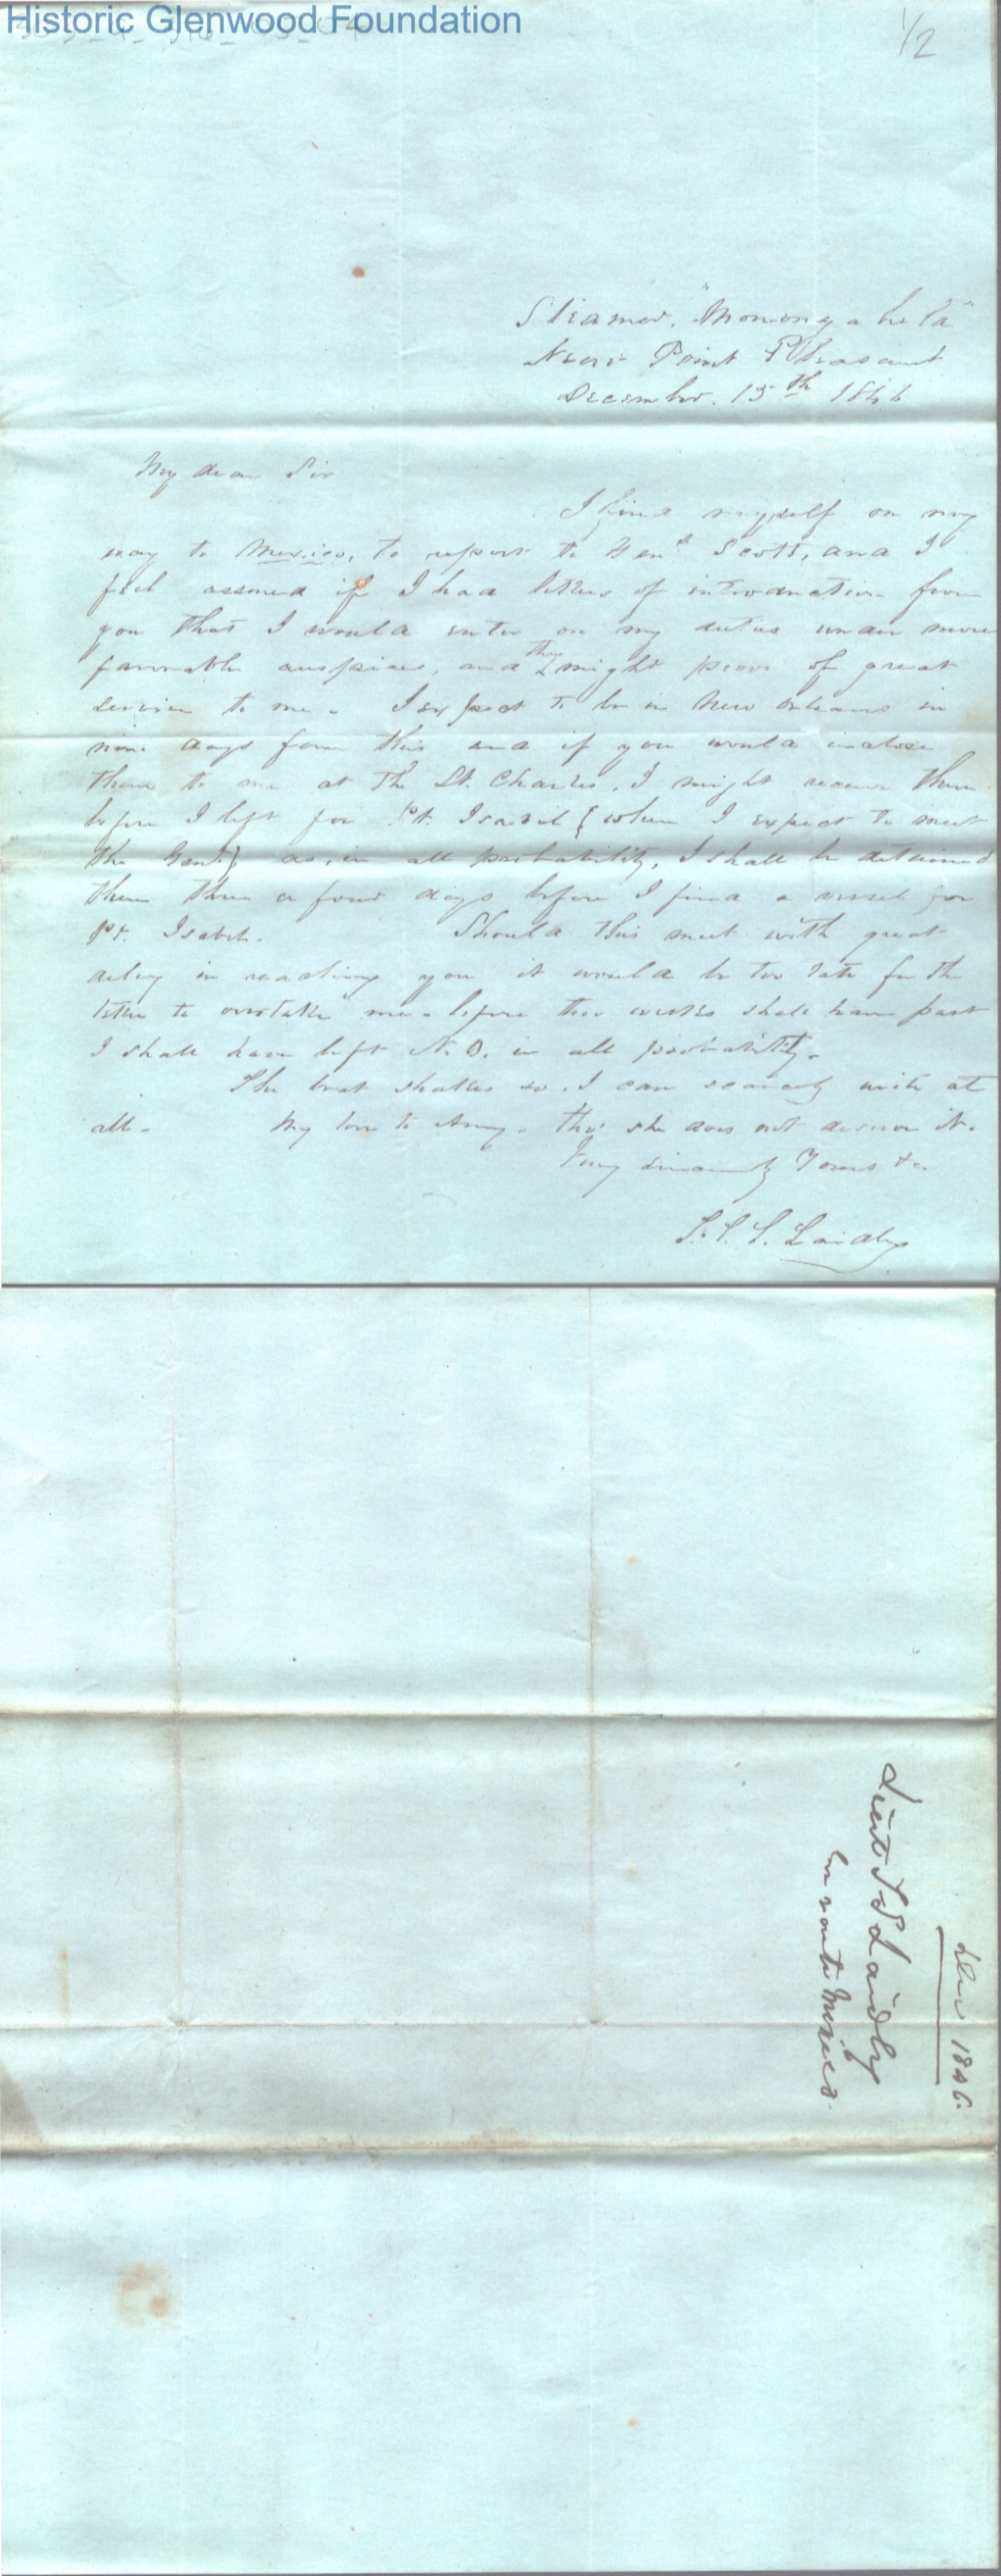 Historic Glenwood Foundation
1/2
Steamer, "Monongahela"
Near Point Pleasant
December. 15th 1846
My dear Sir
I find myself on my
way to Mexico, to report to Genl Scott, and I
feel assured if I had letters of introduction from
you that I would enter on my duties under more
favorable auspices, and they might prove of great
service to me. I expect to be in New Orleans in
nine days from this and if you would inclose
them to me at the St. Charles, I might receive them
before I left for Pt. Isabel {where I expect to meet
the Genl.} as, in all probability, I shall be detained
there three or four days before I find a vessel for
Pt. Isabel. Should this meet with great
delay in reaching you it would be too late for the
letter to overtake me - before two weeks shall have past
I shall have left N.O. in all probability.
The boat shakes so, I can scarcely write at
all. My love to Amy. tho' she does not deserve it.
Very sincerely Yours &c
T.T.S. Laidley
Dec 1846
Lieut T S Laidley
En route Mexico